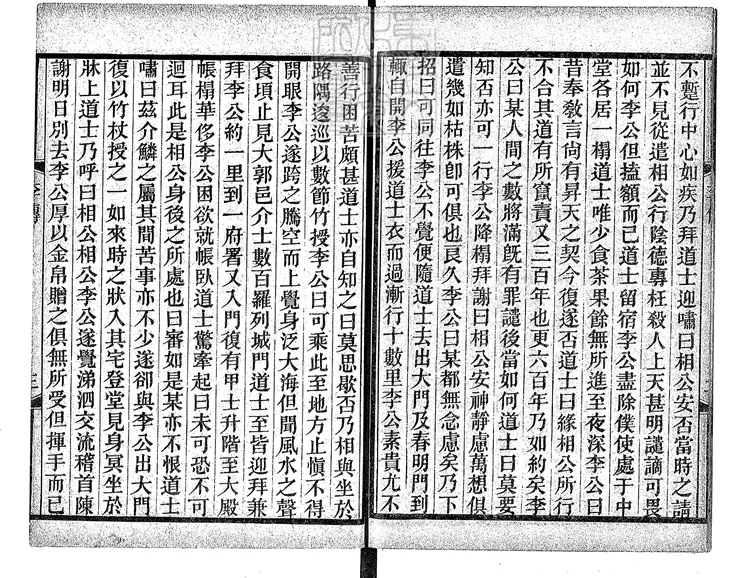 不蹔行中心如疾乃拜道士迎嘯曰相公安否當時之請
並不見從遣相公行陰德專枉殺人上天甚明譴謫可畏
如何李公但搕額而已道士留宿李公盡除僕使處于中
堂各居一榻道士唯少食茶果餘無所進至夜深李公曰
昔奉敎言尚有昇天之契今復遂否道士曰緣相公所行
不合其道有所竄責又三百年也更六百年乃如約矣李
公曰某人間之數將滿旣有罪譴後當如何道士曰莫要
知否亦可一行李公降榻拜謝曰相公安神靜慮萬想俱
遣幾如枯株卽可俱也良久李公曰某都無念慮矣乃下
招曰可同往李公不覺便隨道士去出大門及春明門到
輒自開李公援道士衣而過漸行十數里李公素貴尤不
善行困苦頗甚道士亦自知之曰莫思歇否乃相與坐於
路隅逡巡以數節竹授李公曰可乘此至地方止愼不得
開眼李公遂跨之騰空而上覺身泛大海但聞風水之聲
食頃止見大郭邑介士數百羅列城門道士至皆迎拜兼
拜李公約一里到一府署又入門復有甲士升階至大殿
帳榻華侈李公困欲就帳臥道士驚牽起曰未可恐不可
迴耳此是相公身後之所處也曰審如是某亦不恨道士
嘯曰茲介鱗之屬其間苦事亦不少遂卻與李公出大門
復以竹杖授之一如來時之狀入其宅登堂見身冥坐於
牀上道士乃呼曰相公相公李公遂覺涕泗交流稽首陳
謝明日別去李公厚以金帛贈之俱無所受但揮手而已